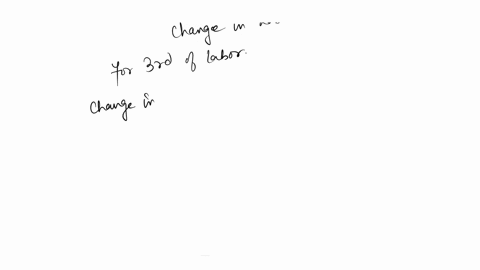 Change in
for 3rd of labor.
Change in